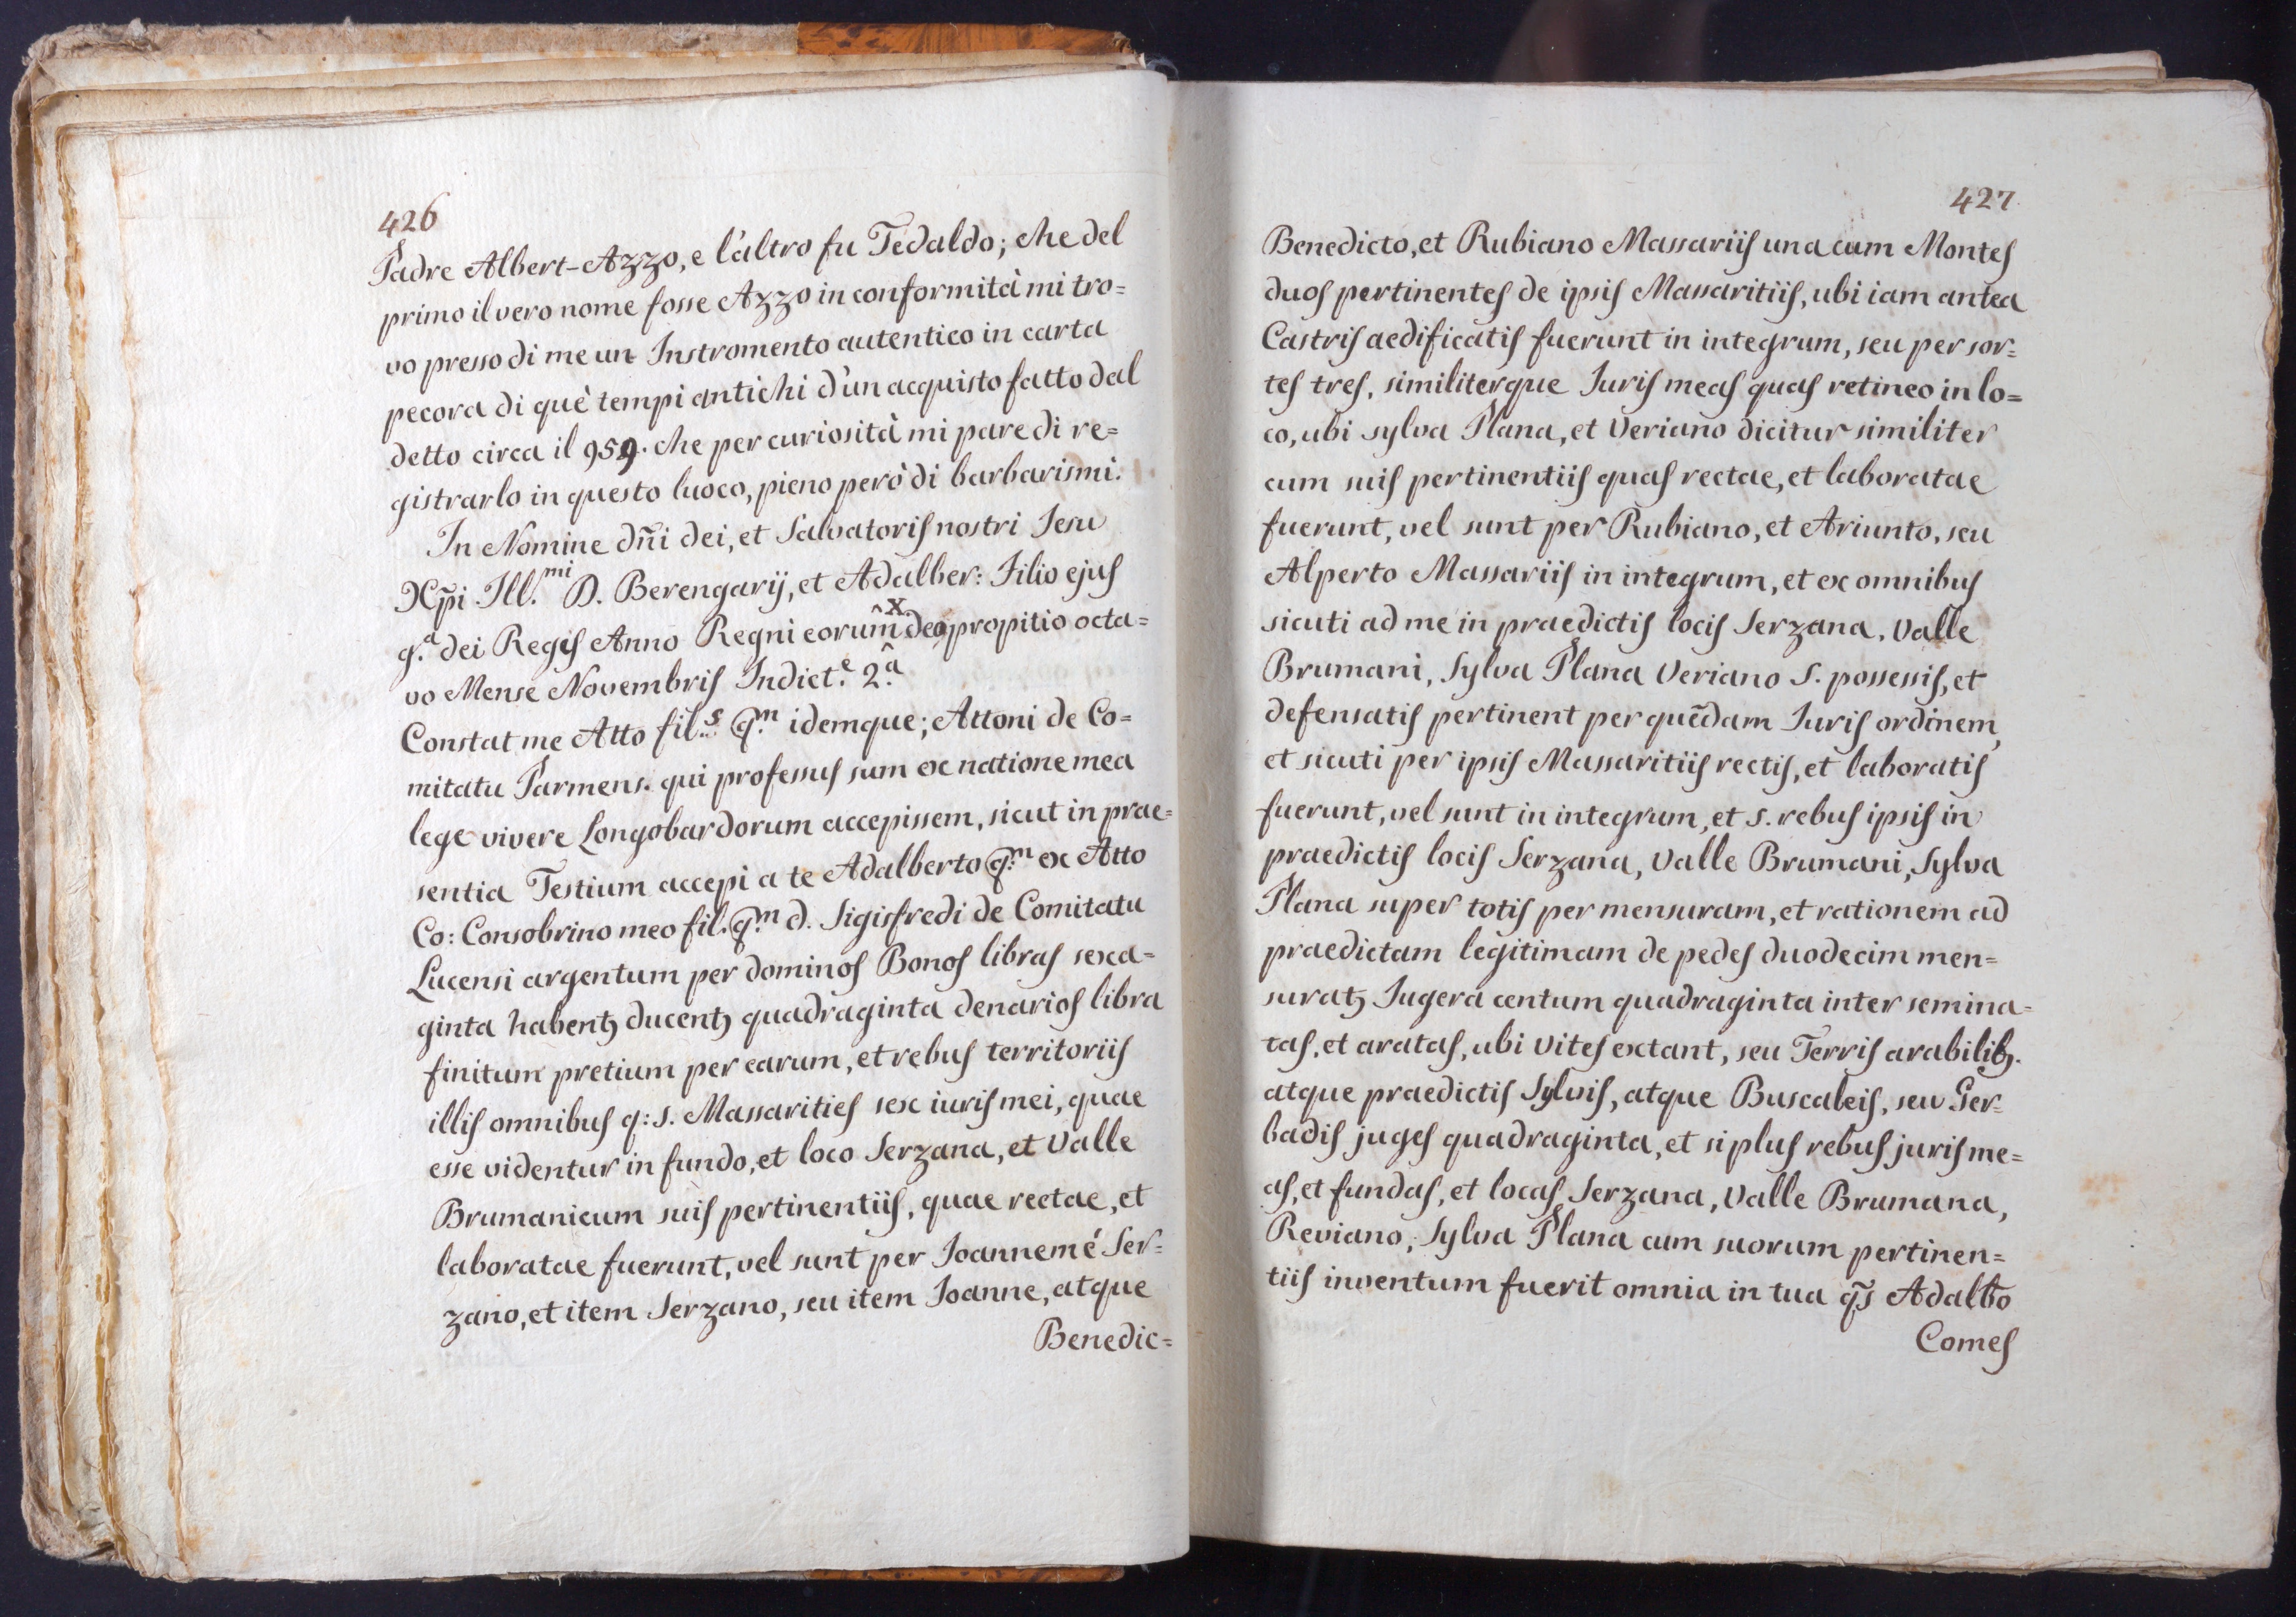 426
Padre Albert-Azzo, e l'altro fu Tedaldo; che del
primo il vero nome fosse Azzo in conformità mi tro=
vo presso di me un Instromento autentico in carta
pecora di què tempi antichi d'un acquisto fatto dal
detto circa il 959. che per curiosità mi pare di re=
gistrarlo in questo luoco, pieno però di barbarismi.
In Nomine dñi dei, et Salvatoris nostri Iesu
Xp̃i Ill.mi D. Berengarij, et Adalber: Filio ejus
g.a dei Regis Anno Regni eorum X deo propitio octa=
vo Mense Novembris Indict.e 2.a
Constat me Atto fil.s q.m idemque; Attoni de Co=
mitatu Parmens. qui professus sum ex natione mea
lege vivere Longobardorum accepissem, sicut in prae=
sentia Testium accepi a te Adalberto q.m ex Atto
Co: Consobrino meo fil. q.m d. Sigisfredi de Comitatu
Lucensi argentum per dominos Bonos libras sexa=
ginta habentꝫ ducentꝫ quadraginta denarios libra
finitum pretium per earum, et rebus territoriis
illis omnibus q: s. Massarities sex iuris mei, quae
esse videntur in fundo, et loco Serzana, et Valle
Brumanicum suis pertinentiis, quae rectae, et
laboratae fuerunt, vel sunt per Joannemé Ser=
zano, et item Serzano, seu item Joanne, atque
Benedic=
427
Benedicto, et Rubiano Massariis una cum Montes
duos pertinentes de ipsis Massaritiis, ubi iam antea
Castris aedificatis fuerunt in integrum, seu per sor=
tes tres, similiterque Iuris meas quas retineo in lo=
co, ubi sylva Plana, et Veriano dicitur similiter
cum suis pertinentiis quas rectae, et laboratae
fuerunt, vel sunt per Rubiano, et Ariunto, seu
Alperto Massariis in integrum, et ex omnibus
sicuti ad me in praedictis locis Serzana, Valle
Brumani, Sylva Plana Veriano S. possessis, et
defensatis pertinent per quẽdam Iuris ordinem,
et sicuti per ipsis Massaritiis rectis, et laboratis
fuerunt, vel sunt in integrum, et s. rebus ipsis in
praedictis locis Serzana, Valle Brumani, Sylva
Plana super totis per mensuram, et rationem ad
praedictam legitimam de pedes duodecim men=
suratꝫ Iugera centum quadraginta inter semina=
tas, et aratas, ubi vites extant, seu Terris arabilibꝫ.
atque praedictis Sylvis, atque Buscaleis, seu Ger=
badis juges quadraginta, et si plus rebus juris me=
as, et fundas, et locas Serzana, Valle Brumana,
Reviano, Sylva Plana cum suorum pertinen=
tiis inventum fuerit omnia in tua q̃s Adalbo
Comes